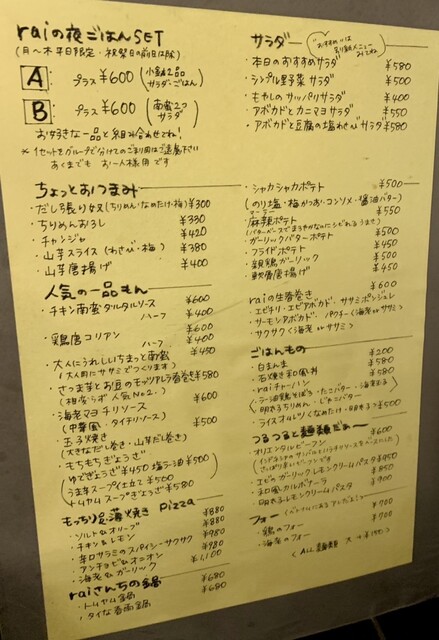 raiの夜ごはんSET
(月〜木 平日限定・祝祭日の前日は除)
A プラス ¥600 (小鉢2品 サラダ・ごはん)
B プラス ¥600
お好きな一品と組み合わせてね!
*1セットをグループで分けてのご利用はご遠慮下さい
あくまでも お一人様用です
ちょっとおつまみ
・だし張り奴 (ちりめん・なめたけ・梅) ¥300
・ちりめんおろし ¥330
・チャンジャ ¥420
・山芋スライス (わさび・梅) ¥380
・山芋唐揚げ ¥400
人気の一品もん
・チキン南蛮タルタルソース ¥600
ハーフ ¥400
・鶏唐コリアン ¥600
ハーフ ¥400
・大人にうれしいちまっと南蛮 ¥450
(大人町にササミでつくります)
・さつま芋とお豆のモッツァレラ春巻き ¥580
(相変らず 人気No.2)
・海老マヨチリソース ¥600
(中華風・タイチリソース)
・玉子焼き ¥500
(大きなだし巻き・山芋だし巻き)
・もちもちぎょうざ
(ゆでぎょうざ ¥450 塩ラー油 ¥500)
うま辛スープ仕立て ¥500
トムヤムスープぎょうざ ¥580
もっちり屋薄焼き pizza
・ソルト&オリーブ ¥880
・チキン&レモン ¥880
・辛口サラミのスパイシーサクサク ¥980
・アンチョビ&オニオン ¥980
・海老&ガーリック ¥1,100
raiさんちの鍋
・トムヤム鍋 ¥680
・タイな春雨鍋 ¥680
サラダー
おすすめは別紙メニューみてね
・本日のおすすめサラダ ¥580
・シンプル野菜サラダ ¥500
・もやしのサッパリサラダ ¥400
・アボカドとカニマヨサラダ ¥550
・アボカドと豆腐の塩わさびサラダ ¥580
・シャカシャカポテト ¥500
(のり塩・梅かつお・コンソメ・醤油バター)
・麻辣ポテト ¥550
マーラー
・ガーリックバターポテト ¥550
・フライドポテト ¥450
・親鶏ガーリック ¥500
・軟骨唐揚げ ¥450
raiの生春巻き ¥600
・エビチリ・エビアボカド・ササミポンジュレ
・サーモンアボカド・パクチー (海老 or ササミ)
・サクサク (海老 or ササミ)
ごはんもの
・白まんま ¥200
・石焼き和風丼 ¥580
・raiチャーハン ¥580
・ライスオムレツ ¥500
つるつると麺類だぁ〜
・オリエンタルビーフン ¥600
・エビのガーリックレモンクリームパスタ ¥950
・和風カルボナーラ ¥850
・明太子レモンクリームパスタ ¥900
フォー
・鶏のフォー ¥700
・海老のフォー ¥900
(ALL麺類 大 +¥150)